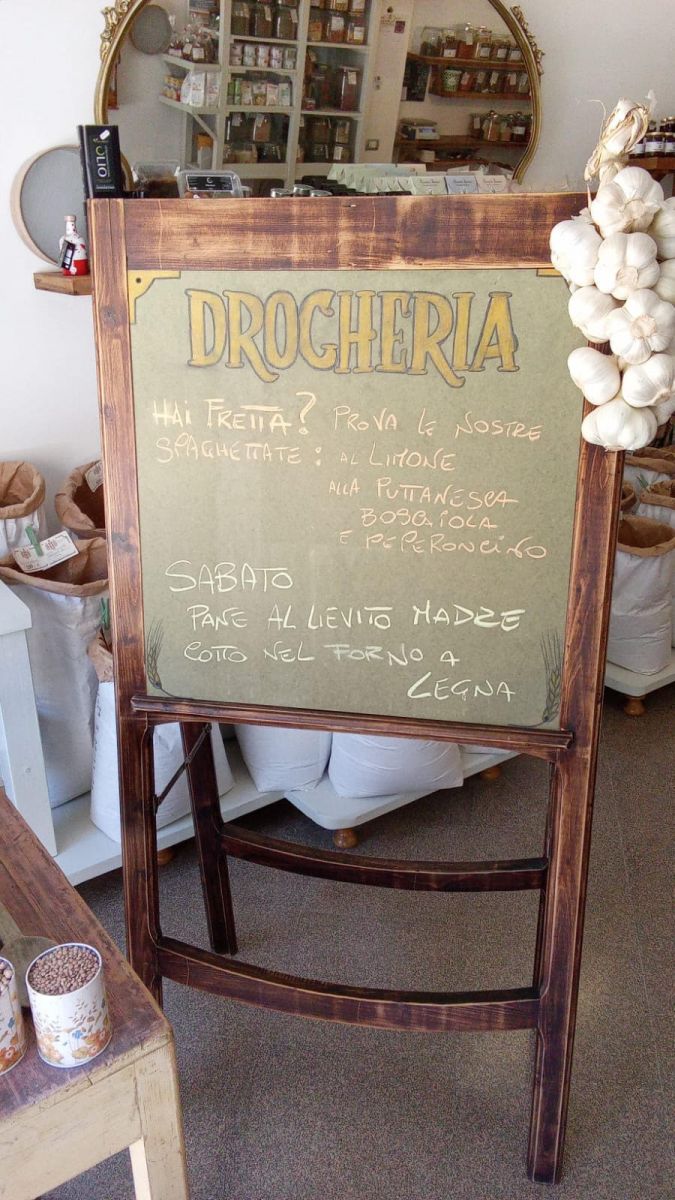 OLIO
DROGHERIA
HAI FRETTA? PROVA LE NOSTRE
SPAGHETTATE: AL LIMONE
ALLA PUTTANESCA
BOSCAIOLA
E PEPERONCINO
SABATO
PANE AL LIEVITO MADRE
COTTO NEL FORNO A
LEGNA